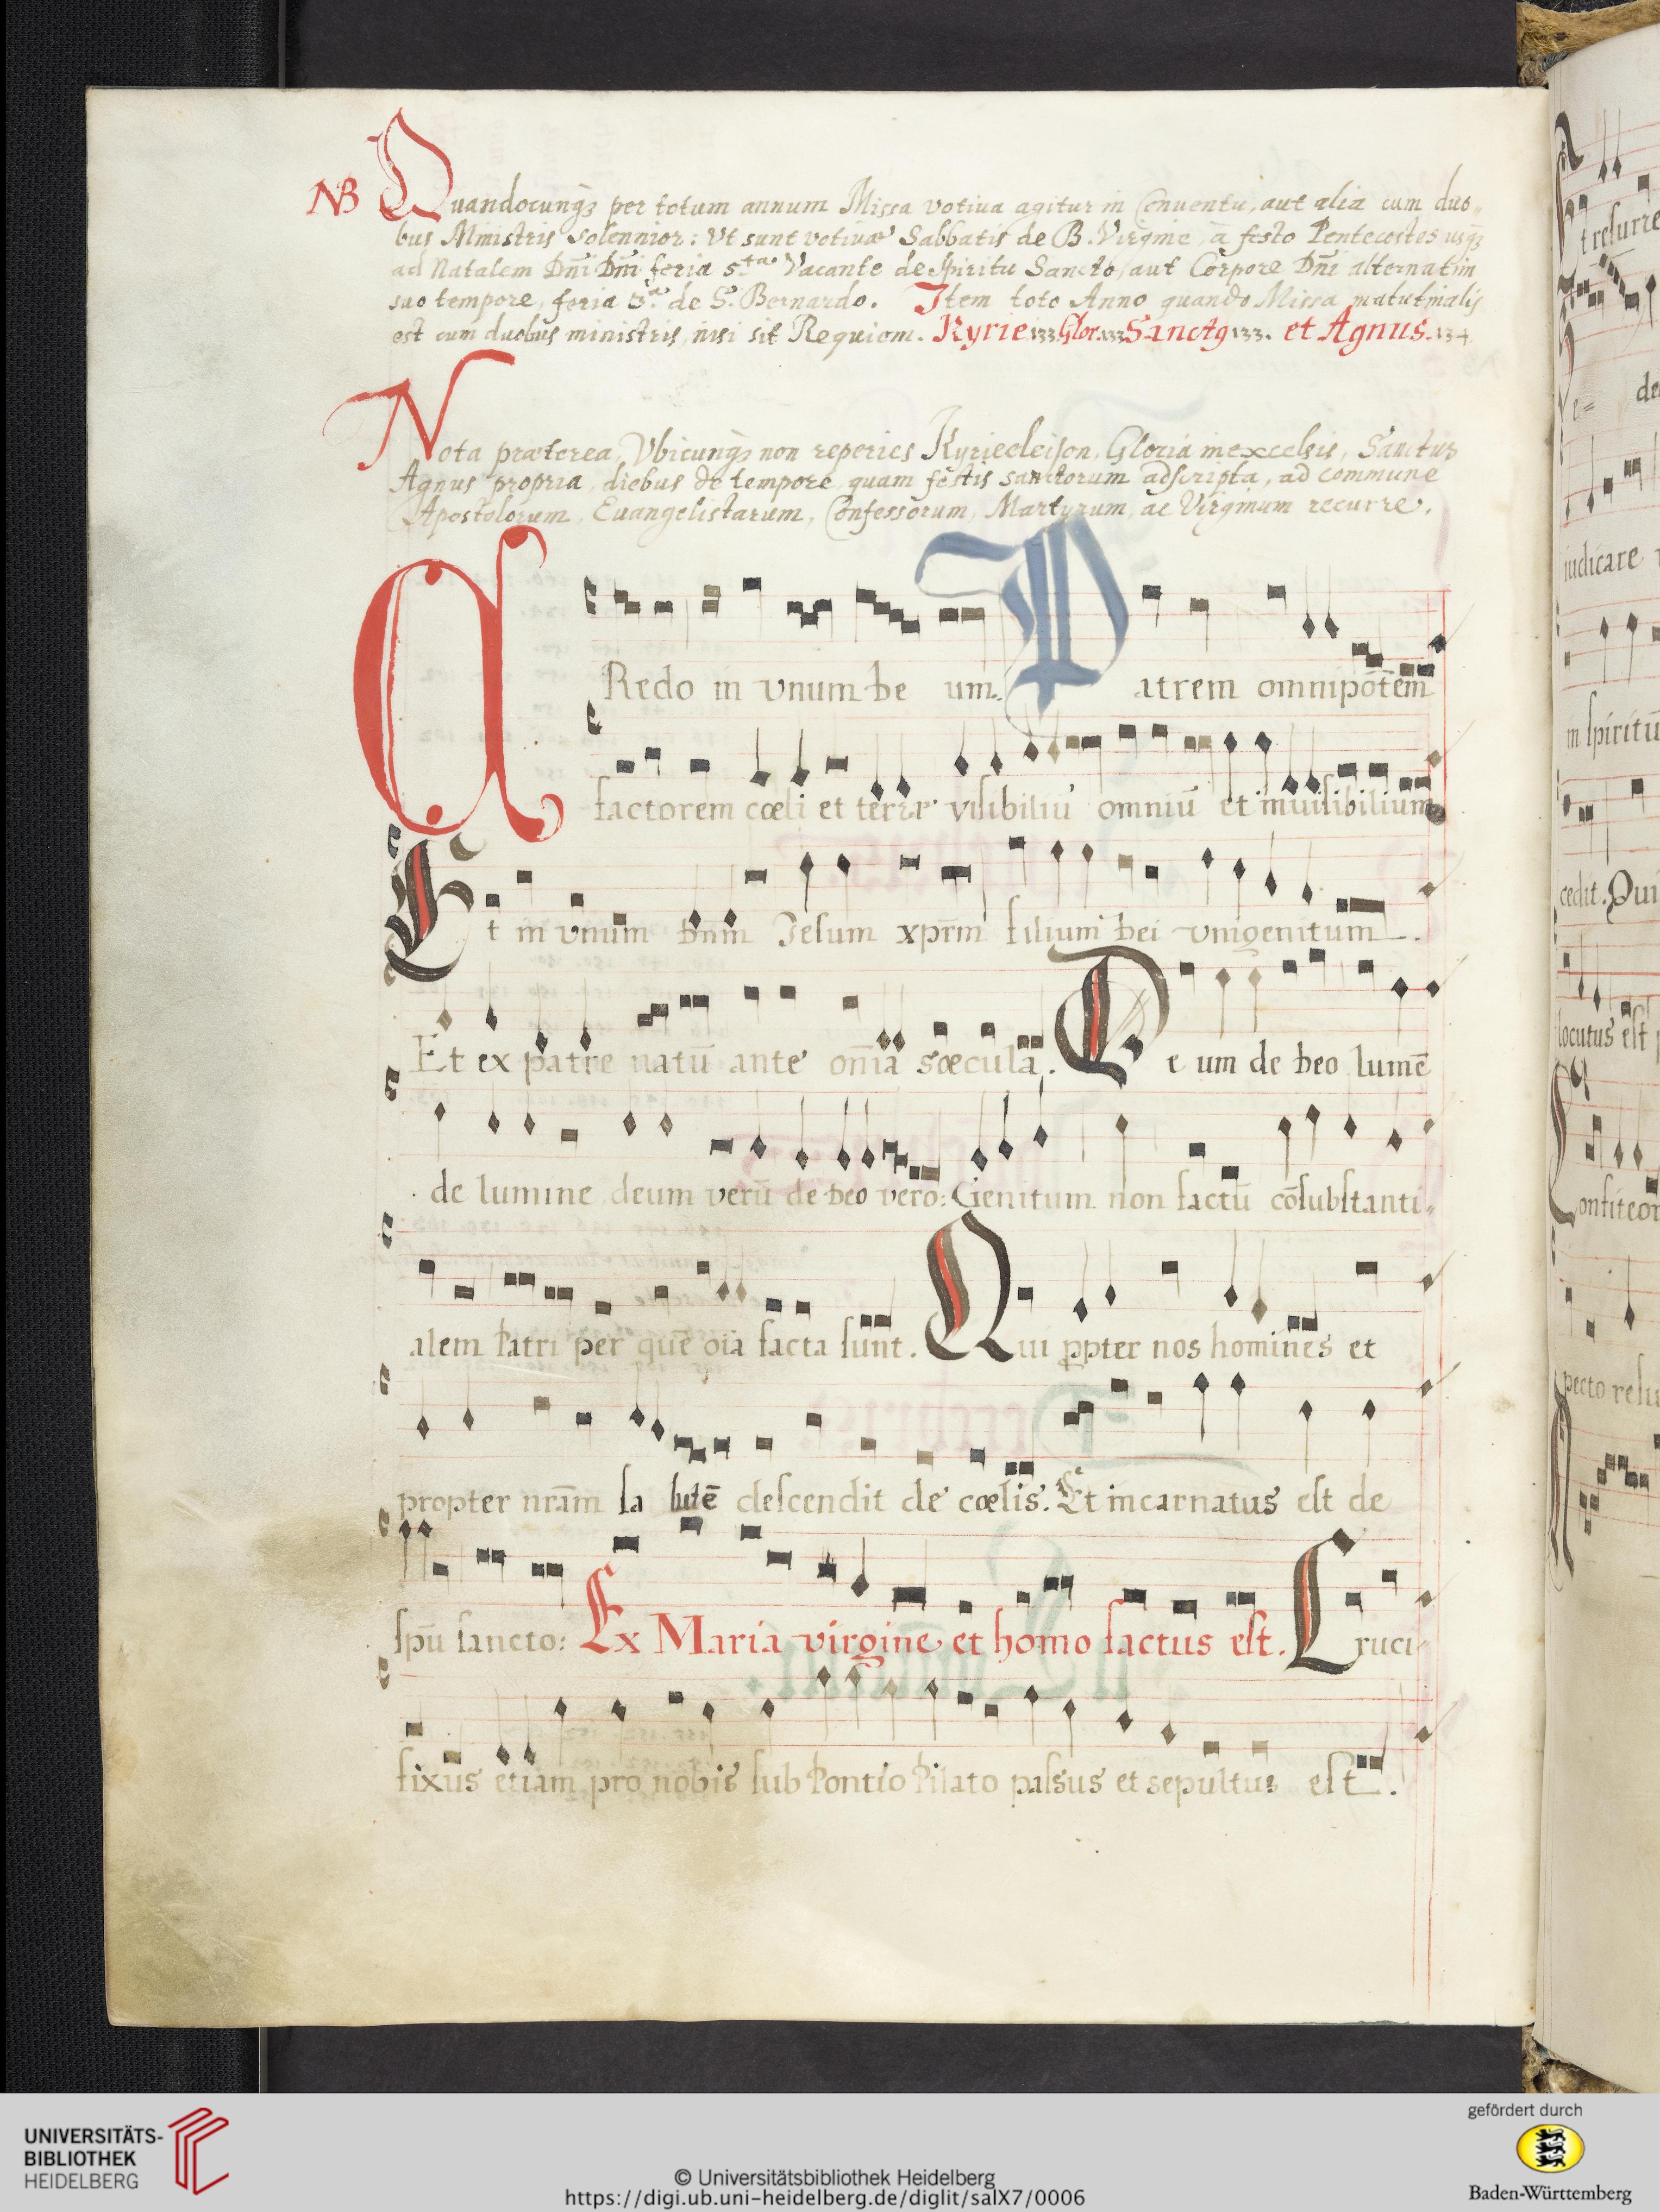 NB Quandocunqꝫ per totum annum Missa votiua agitur in Conuentu, aut alia cum duo„
bus Ministris solennior: Vt sunt votiuæ Sabbatis de B. Virgine, a festo Pentecostes usqꝫ
ad Natalem Dn̄i Dn̄i feria 5.ta Vacante de Spiritu Sancto, aut Corpore Dn̄i alternatim
suo tempore, feria 3.a de S. Bernardo. Item toto Anno quando Missa matutinalis
est cum duobus ministris, nisi sit Requiem. Kyrie 133. Glor. 133 Sanctꝯ 133. et Agnus. 134
Nota præterea, Vbicunqꝫ non reperies Kyrieeleison, Gloria in excelsis, Sanctus
Agnus propria, diebus de tempore, quam festis sanctorum adscripta, ad commune
Apostolorum, Euangelistarum, Confessorum, Martyrum, ac Virginum recurre.
CRedo in vnum de um. Patrem omnipotēm
factorem cœli et terræ visibiliū omniū et inuisibilium
Et in vnum dn̄m Iesum xpr̄m filium dei vnigenitum.
Et ex patre natū ante om̄ia sæcula. Deum de deo lumē
de lumine deum verū de deo vero: Genitum non factū cōsubstanti„
alem Patri per quē oīa facta sunt. Qui ꝓpter nos homines et
propter nr̄am sa lutē descendit de cœlis. Et incarnatus est de
spū sancto: Ex Maria virgine et homo factus est. Cruci
fixus etiam pro nobis sub Pontio Pilato passus et sepultus est.
t resurre
de
iudicare
in spiritū
cedit. Qui
locutus est
Confiteor
UNIVERSITÄTS-
BIBLIOTHEK
HEIDELBERG
© Universitätsbibliothek Heidelberg
https://digi.ub.uni-heidelberg.de/diglit/salX7/0006
gefördert durch
Baden-Württemberg